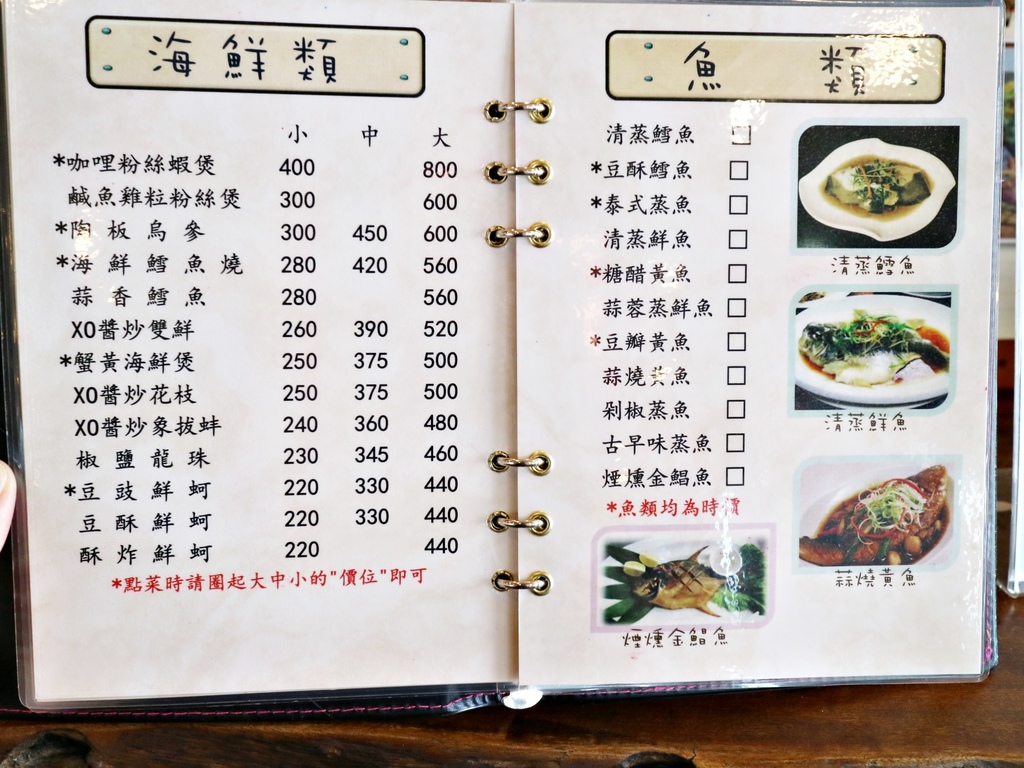 海鮮類
小 中 大
*咖哩粉絲蝦煲 400 800
鹹魚雞粒粉絲煲 300 600
*陶板烏參 300 450 600
*海鮮鱈魚燒 280 420 560
蒜香鱈魚 280 560
XO醬炒雙鮮 260 390 520
*蟹黃海鮮煲 250 375 500
XO醬炒花枝 250 375 500
XO醬炒象拔蚌 240 360 480
椒鹽龍珠 230 345 460
*豆豉鮮蚵 220 330 440
豆酥鮮蚵 220 330 440
酥炸鮮蚵 220 440
*點菜時請圈起大中小的"價位"即可
魚類
清蒸鱈魚 □
*豆酥鱈魚 □
*泰式蒸魚 □
清蒸鮮魚 □
*糖醋黃魚 □
蒜蓉蒸鮮魚 □
*豆瓣黃魚 □
蒜燒黃魚 □
剁椒蒸魚 □
古早味蒸魚 □
煙燻金鯧魚 □
*魚類均為時價
清蒸鱈魚
清蒸鮮魚
蒜燒黃魚
煙燻金鯧魚